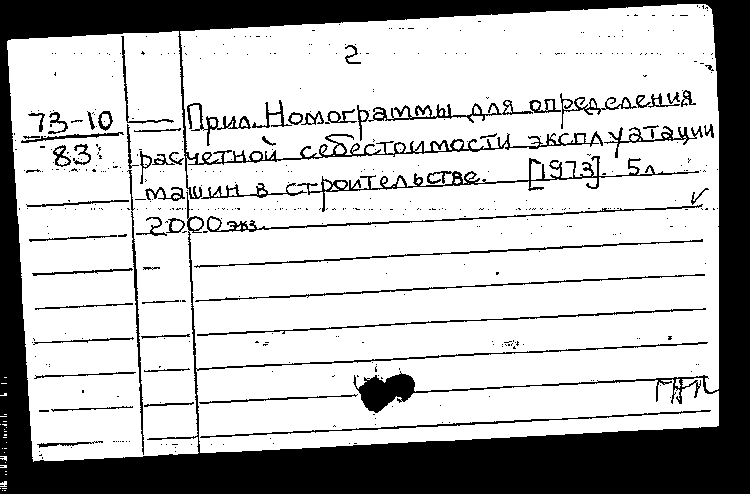 2
73-10 — Прил. Номограммы для определения
83 расчетной себестоимости эксплуатации
машин в строительстве. [1973]. 5л.
2000 экз.